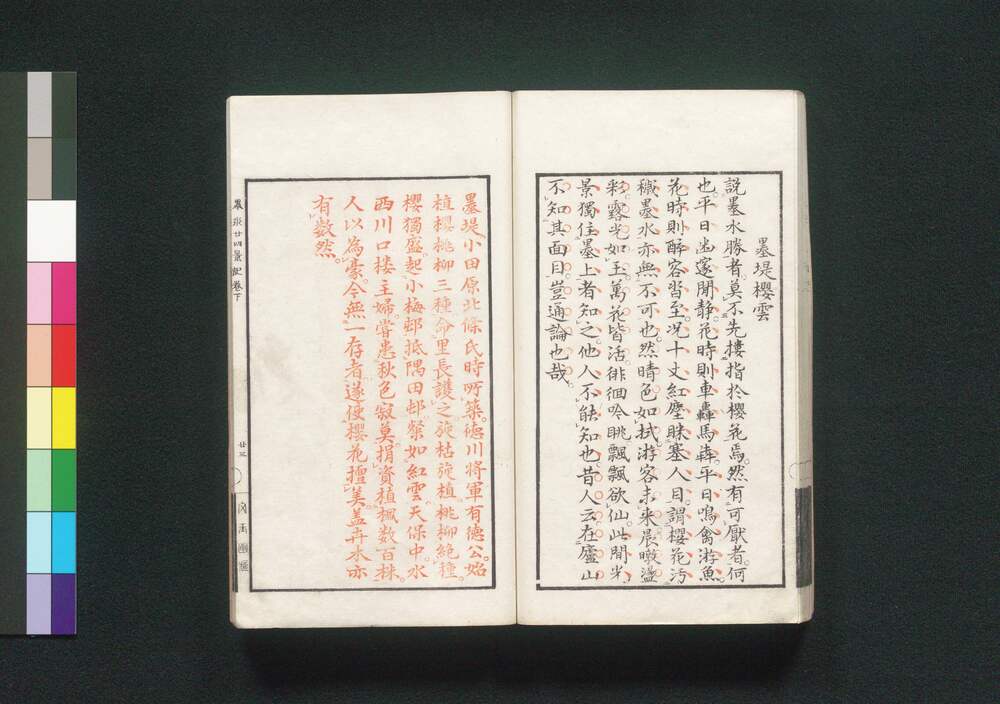 墨堤櫻雲
説墨水勝者。莫不先搂指於櫻花焉。然有可厭者。何
也。平日幽邃閒静。花時則車轟馬犇。平日鳴禽游魚。
花時則醉客沓至。况十丈紅塵眯塞人目。謂櫻花汚
穢墨水亦無不可也。然晴色如拭。游客未来。晨暾盪
彩。露光如玉。萬花皆活。徘徊吟眺。飄飄欲仙。此間光
景。獨住墨上者知之。他人不能知也。昔人云。在廬山
不知其面目。豈通論也哉。
墨堤小田原北條氏時所築。徳川将軍有徳公。始
植櫻桃柳三種。命里長護之。旋枯旋植。桃柳絶種。
櫻獨盛。起小梅邨抵隅田邨。粲如紅雲。天保中。水
西川口楼主婦。嘗患秋色寂莫。捐資植楓数百株。
人以為豪。今無一存者。遂使櫻花擅美。盖卉木亦
有数然。
墨水廿四景記巻下
廿三